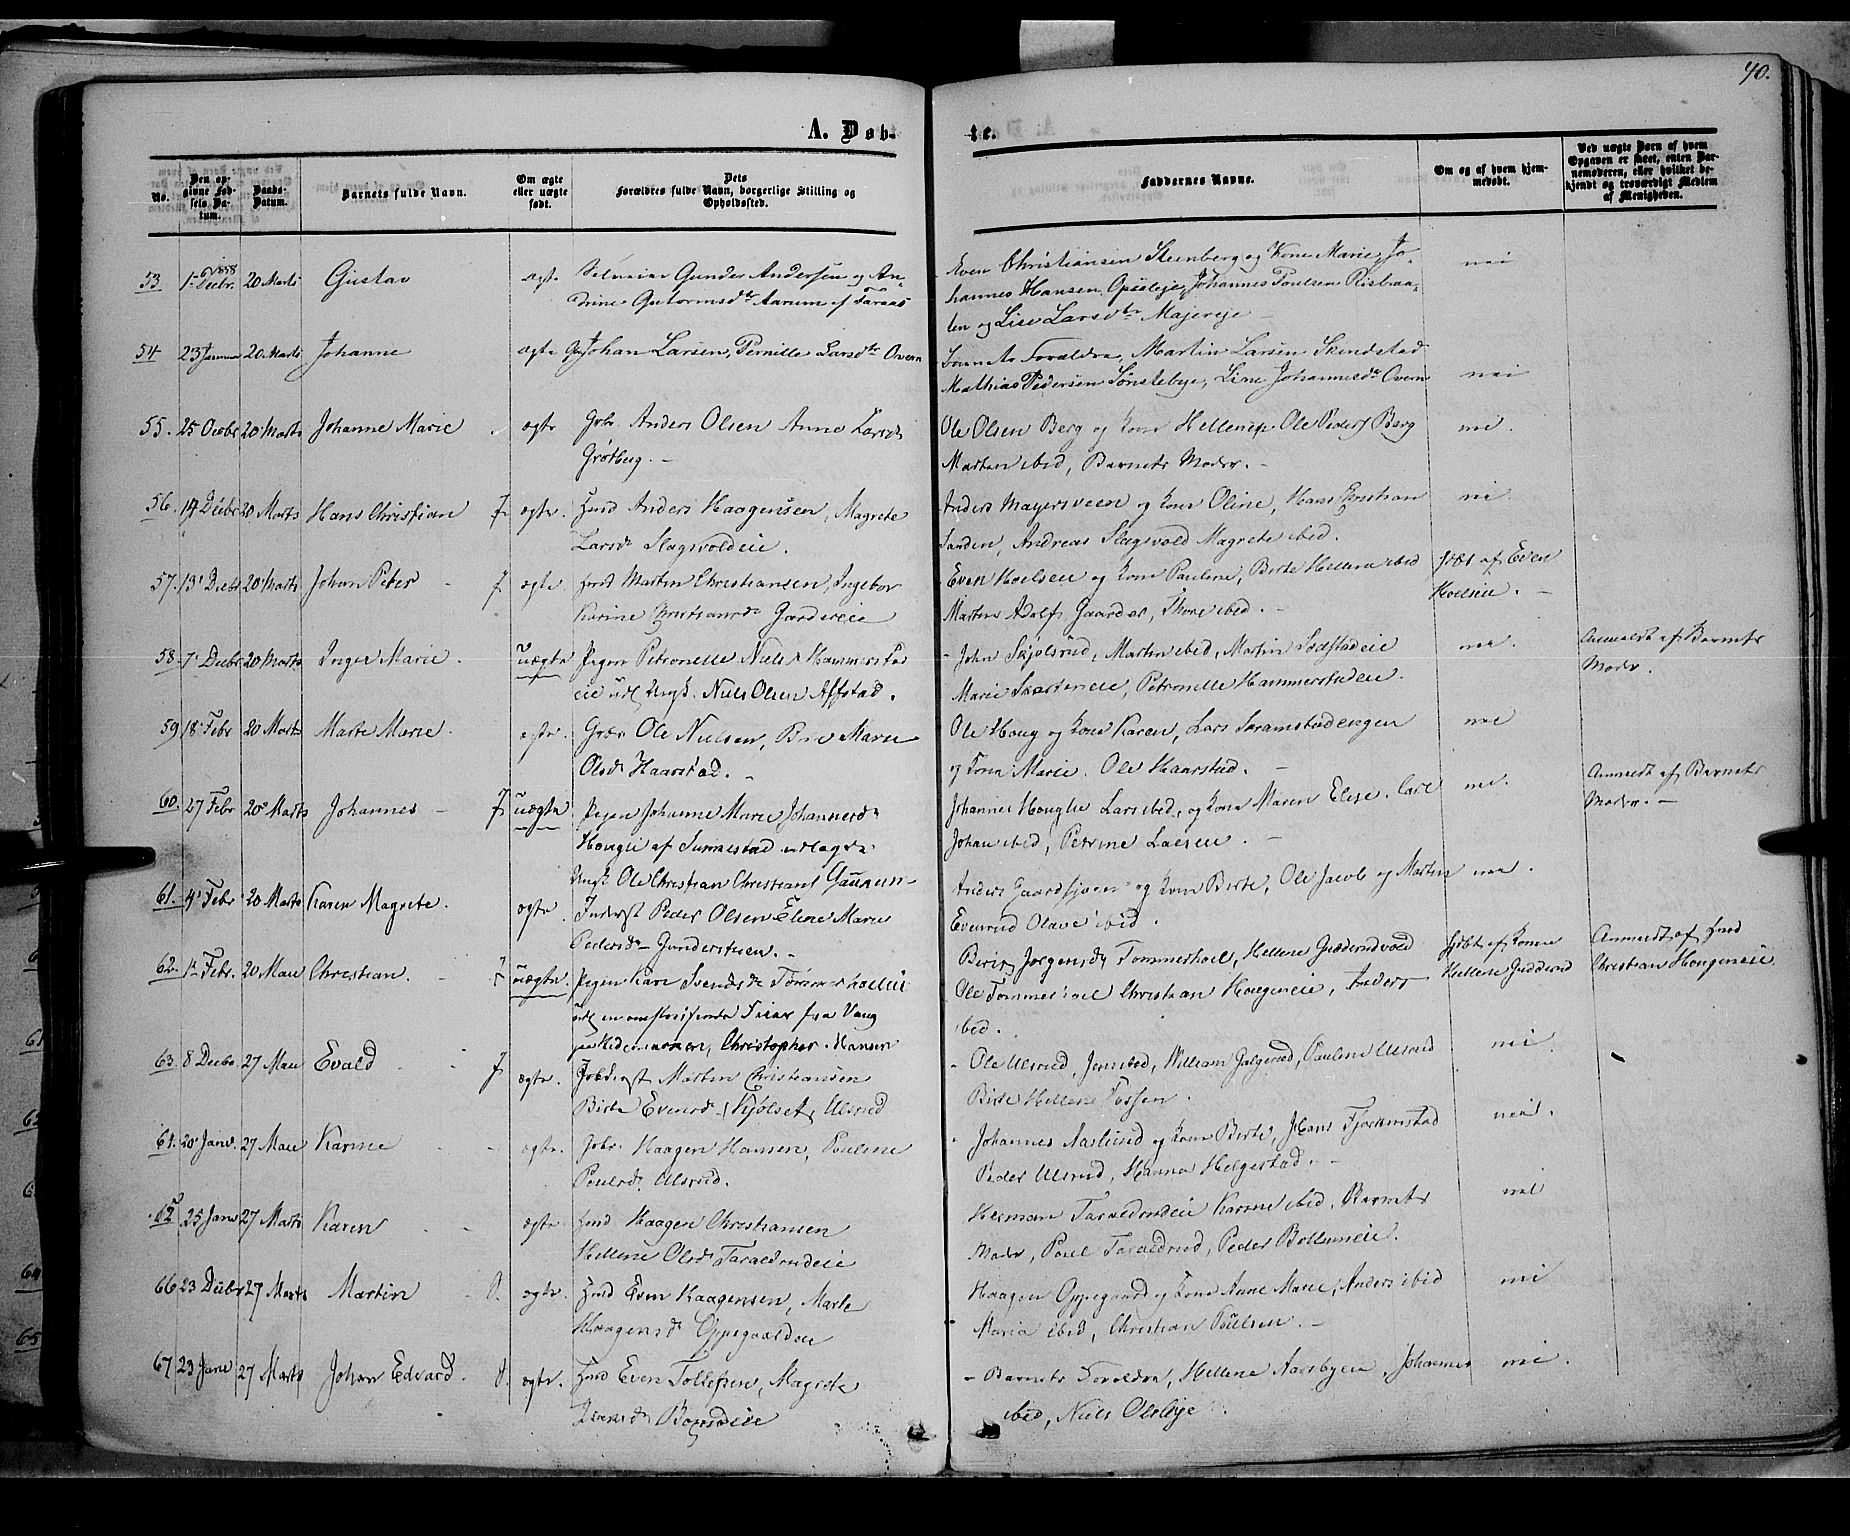 40.
A. Døb-
te.
No.
Den opgivne Fødsels Datum.
Daabs-Datum.
Barnets fulde Navn.
Om ægte eller uægte født.
Dets Forældres fulde Navn, borgerlige Stilling og Opholdssted.
Faddernes Navne.
Om og af hvem hjemmedøbt.
Ved uægte Børn af hvem Opgaven er skeet, enten Barnemoderen, eller hvilket bekjendt og troværdigt Medlem af Menigheden.
53 1 Decbr. 1858 20 Marts Gustav ægte Gunder Andersen og An-
drine Gutormsdtr Aarum af Faraas
Even Christiansen Steenberg og Kone Marie, Jo-
hannes Hansen Opsleje, Johannes Poulsen Risbraa-
ten og Lise Larsdtr Majereje
nei
54 23 Januar 20 Marts Johanne ægte Johan Larsen, Pernille Larsdtr Overn
Barnets Forældre, Martin Larsen Skindstad
Mathias Pedersen Sønstebye, Line Johannesdtr Overn
nei
55. 25 Octbr 20 Marts Johanne Marie ægte Gbr. Anders Olsen Anne Larsd
Grøtberg.
Ole Olsen Berg og Kone Hellene, Ole Peders Berg
Marthen ibid, Barnets Moder.
nei.
56. 14 Decbr 20 Marts Hans Christian f ægte. Husd Anders Haagensen, Magrete
Larsd Slagsvoldeie.
Anders Mayersveen og Kone Oline, Hans Christian
Sanden, Andreas Slagsvold Magrete ibid.
nei.
57. 13 Decbr 20 Marts Johan Peter f ægte. Husd Martin Christiansen, Ingebor
Karine Christiansd Gardereie
Even Hoelseie og Kone Pauline, Birte Hellene ibid
Marthin Adolf Gaarder, Thore ibid.
Døbt af Even
Hoelseie.
58. 7 Decbr 20 Marts Inger Marie. uægte Pigen Petronelle Niels Hammersta
eie udl Ungk. Niels Olsen Affstad.
John Skjolsrud, Martin ibid, Martin Sodstadeie
Marie Skartereie, Petronelle Hammerstadeie.
nei.
Anmeldt af Barnets
Moder.
59 18 Febr 20 Marts Marte Marie. ægte. Ole Nielsen, Marie
Olsd Haarstad.
Ole Houg og Kone Karen, Lars Skramstadengen
og Kone Marie. Ole Haarstad.
nei
60. 27 Febr 20 Marts Johannes f uægte. Pigen Johanne Marie Johannesd
Hougie af Sunnestad udlagde
Ungk Ole Christian Christians
Johannes Hougie Lars ibid, og Kone Maren Elise. Carl
Johan ibid, Petrine Laeseie.
nei.
Anmeldt af Barnets
Moder.
61. 4 Febr 20 Marts Karen Magrete. ægte. Inderst Peder Olsen Eline Marie
Pedersd Gundersteen.
Anders og Kone Birte, Ole Jacob og Martin
Evenrud Olave ibid.
nei.
62. 1 Febr. 20 Mai Christian. f uægte. Pigen Kari Svendsd Tommerhoeleie
fra Vang
paa Hedemarken, Christopher Hansen
Jørgensd Tommerhoel, Hellene Gudderudvold
Ole Tommerhoel Christian Hougeneie, Anders
ibid.
Døbt af Konne
Hellene Gudderud
Anmeldt af Husd
Christian Hougeneie.
63. 8 Decbr 27 Mai Evald f ægte. Martin Christiansen
Birte Evensd Kjølset, Ulsrud
Ole Ulsrud, William Galgerud, Pauline Ulsrud
Birte Hellene Fossen.
nei.
64. 20 Janv. 27 Mai Karine ægte. Gbr. Haagen Hansen, Pouline
Poulsd. Ulsrud.
Johannes Aaslund og Kone Birte, Hans Fjørkenstad
Peder Ulsrud, Hanna Helgestad.
nei.
65 25 Janv 27 Marts Karen ægte. Husd Haagen Christiansen
Hellene Olsd Taraldrudeie
Herman Taraldrudeie Karine ibid, Barnets
Moder, Poul Taraldrud, Peder Bolleneie.
nei
66. 23 Decbr 27 Marts Martin 0. ægte. Husd Even Haagensen, Marte
Haagensd Oppegaardeie
Haagen Oppegaard og Kone Anne Marie, Anders ibid
Maria ibid, Christian Poulsen.
nei
67 23 Janv 27 Marts Johan Edvard. 0. ægte. Husd Even Tollefsen, Magrete
Iversd
Barnets Forældre, Hellene Aarsbyen, Johannes
ibid, Niels Olsbye
nei.